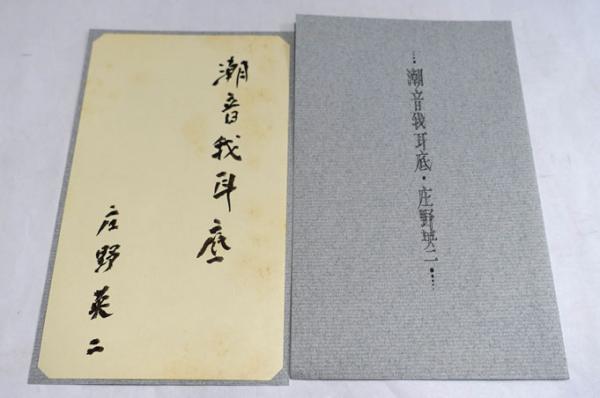 潮音我耳底
庄野英二
潮音我耳底・庄野英二